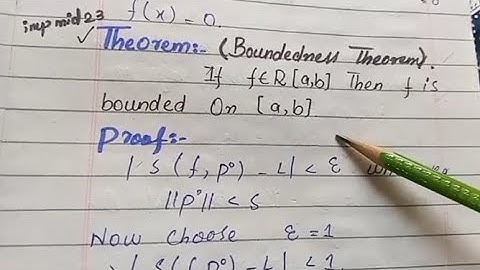 f(x) = 0.
imp mid 23
✓ Theorem:- (Boundedness Theorem).
If f∈R [a,b] Then f is
bounded On [a,b]
Proof:-
| S (f, p°) - L| < ε
||p°|| < s
Now choose ε = 1
| S (f, p°) - L| < 1